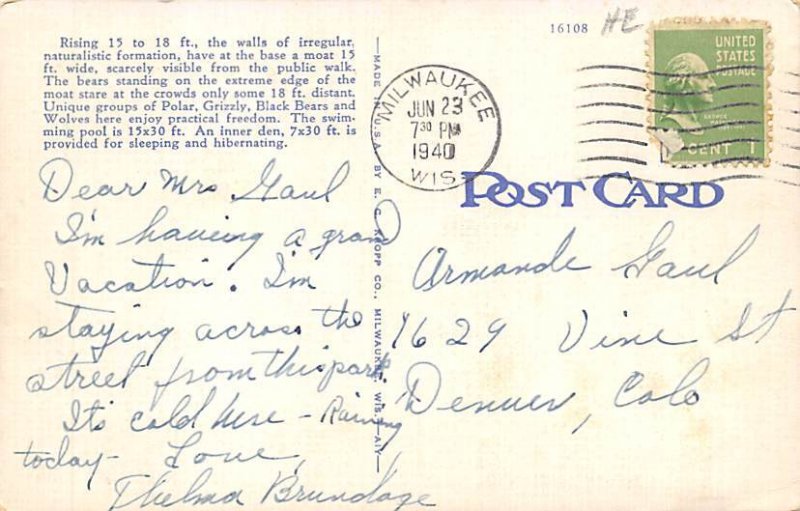 16108
HE
Rising 15 to 18 ft., the walls of irregular,
naturalistic formation, have at the base a moat 15
ft. wide, scarcely visible from the public walk.
The bears standing on the extreme edge of the
moat stare at the crowds only some 18 ft. distant.
Unique groups of Polar, Grizzly, Black Bears and
Wolves here enjoy practical freedom. The swim-
ming pool is 15x30 ft. An inner den, 7x30 ft. is
provided for sleeping and hibernating.
Dear Mrs Gaul
I'm having a grand
Vacation. I'm
staying across the
street from this park.
It's cold here - Raining
today - Love,
Thelma Brundage
MADE IN U.S.A. BY E. C. KROPP CO., MILWAUKEE, WIS.
MILWAUKEE
JUN 23
7 30 PM
1940
WIS.
UNITED
STATES
POSTAGE
CENT 1
POST CARD
Armande Gaul
1629 Vine St
Denver, Colo